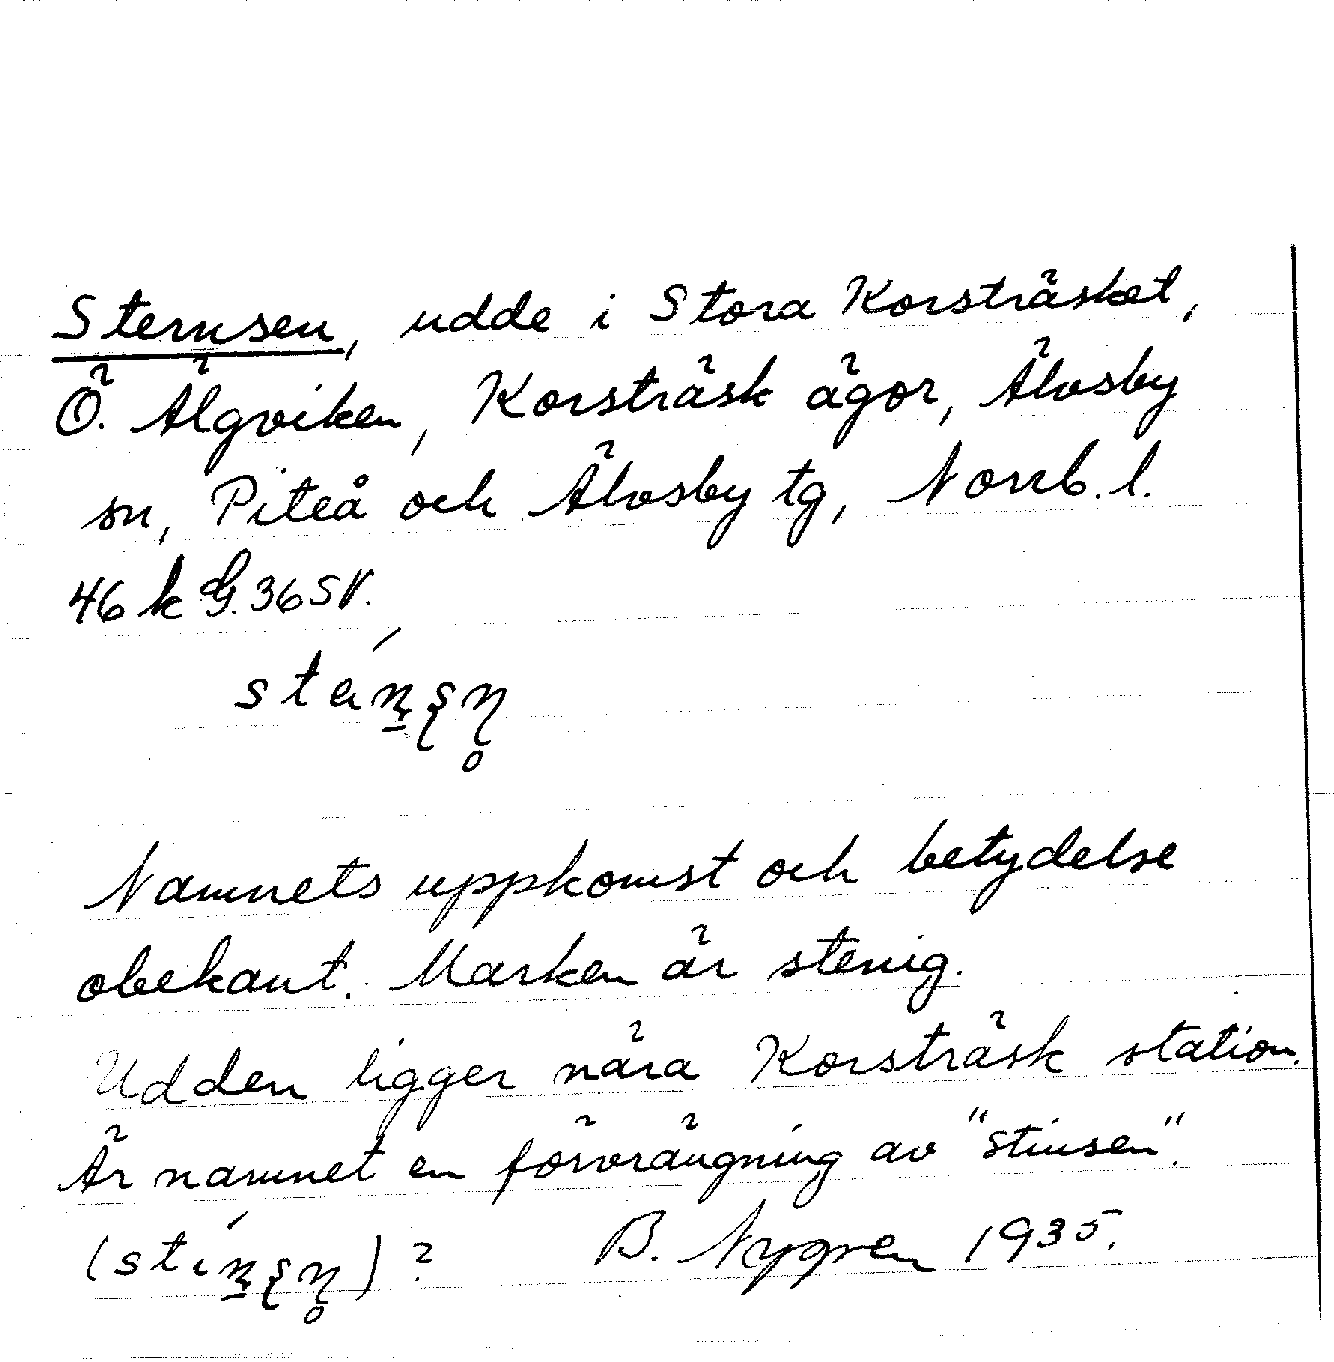 Sternsen, udde i Stora Korsträsket,
Ö. Älgviken, Korsträsk ägor, Älvsby
sn, Piteå och Älvsby tg, Norrb. l.
46 k G. 36 SV.
Namnets uppkomst och betydelse
obekant. Marken är stenig.
Udden ligger nära Korsträsk station.
Är namnet en förvrängning av "stinsen".
? B. Nygren 1935.